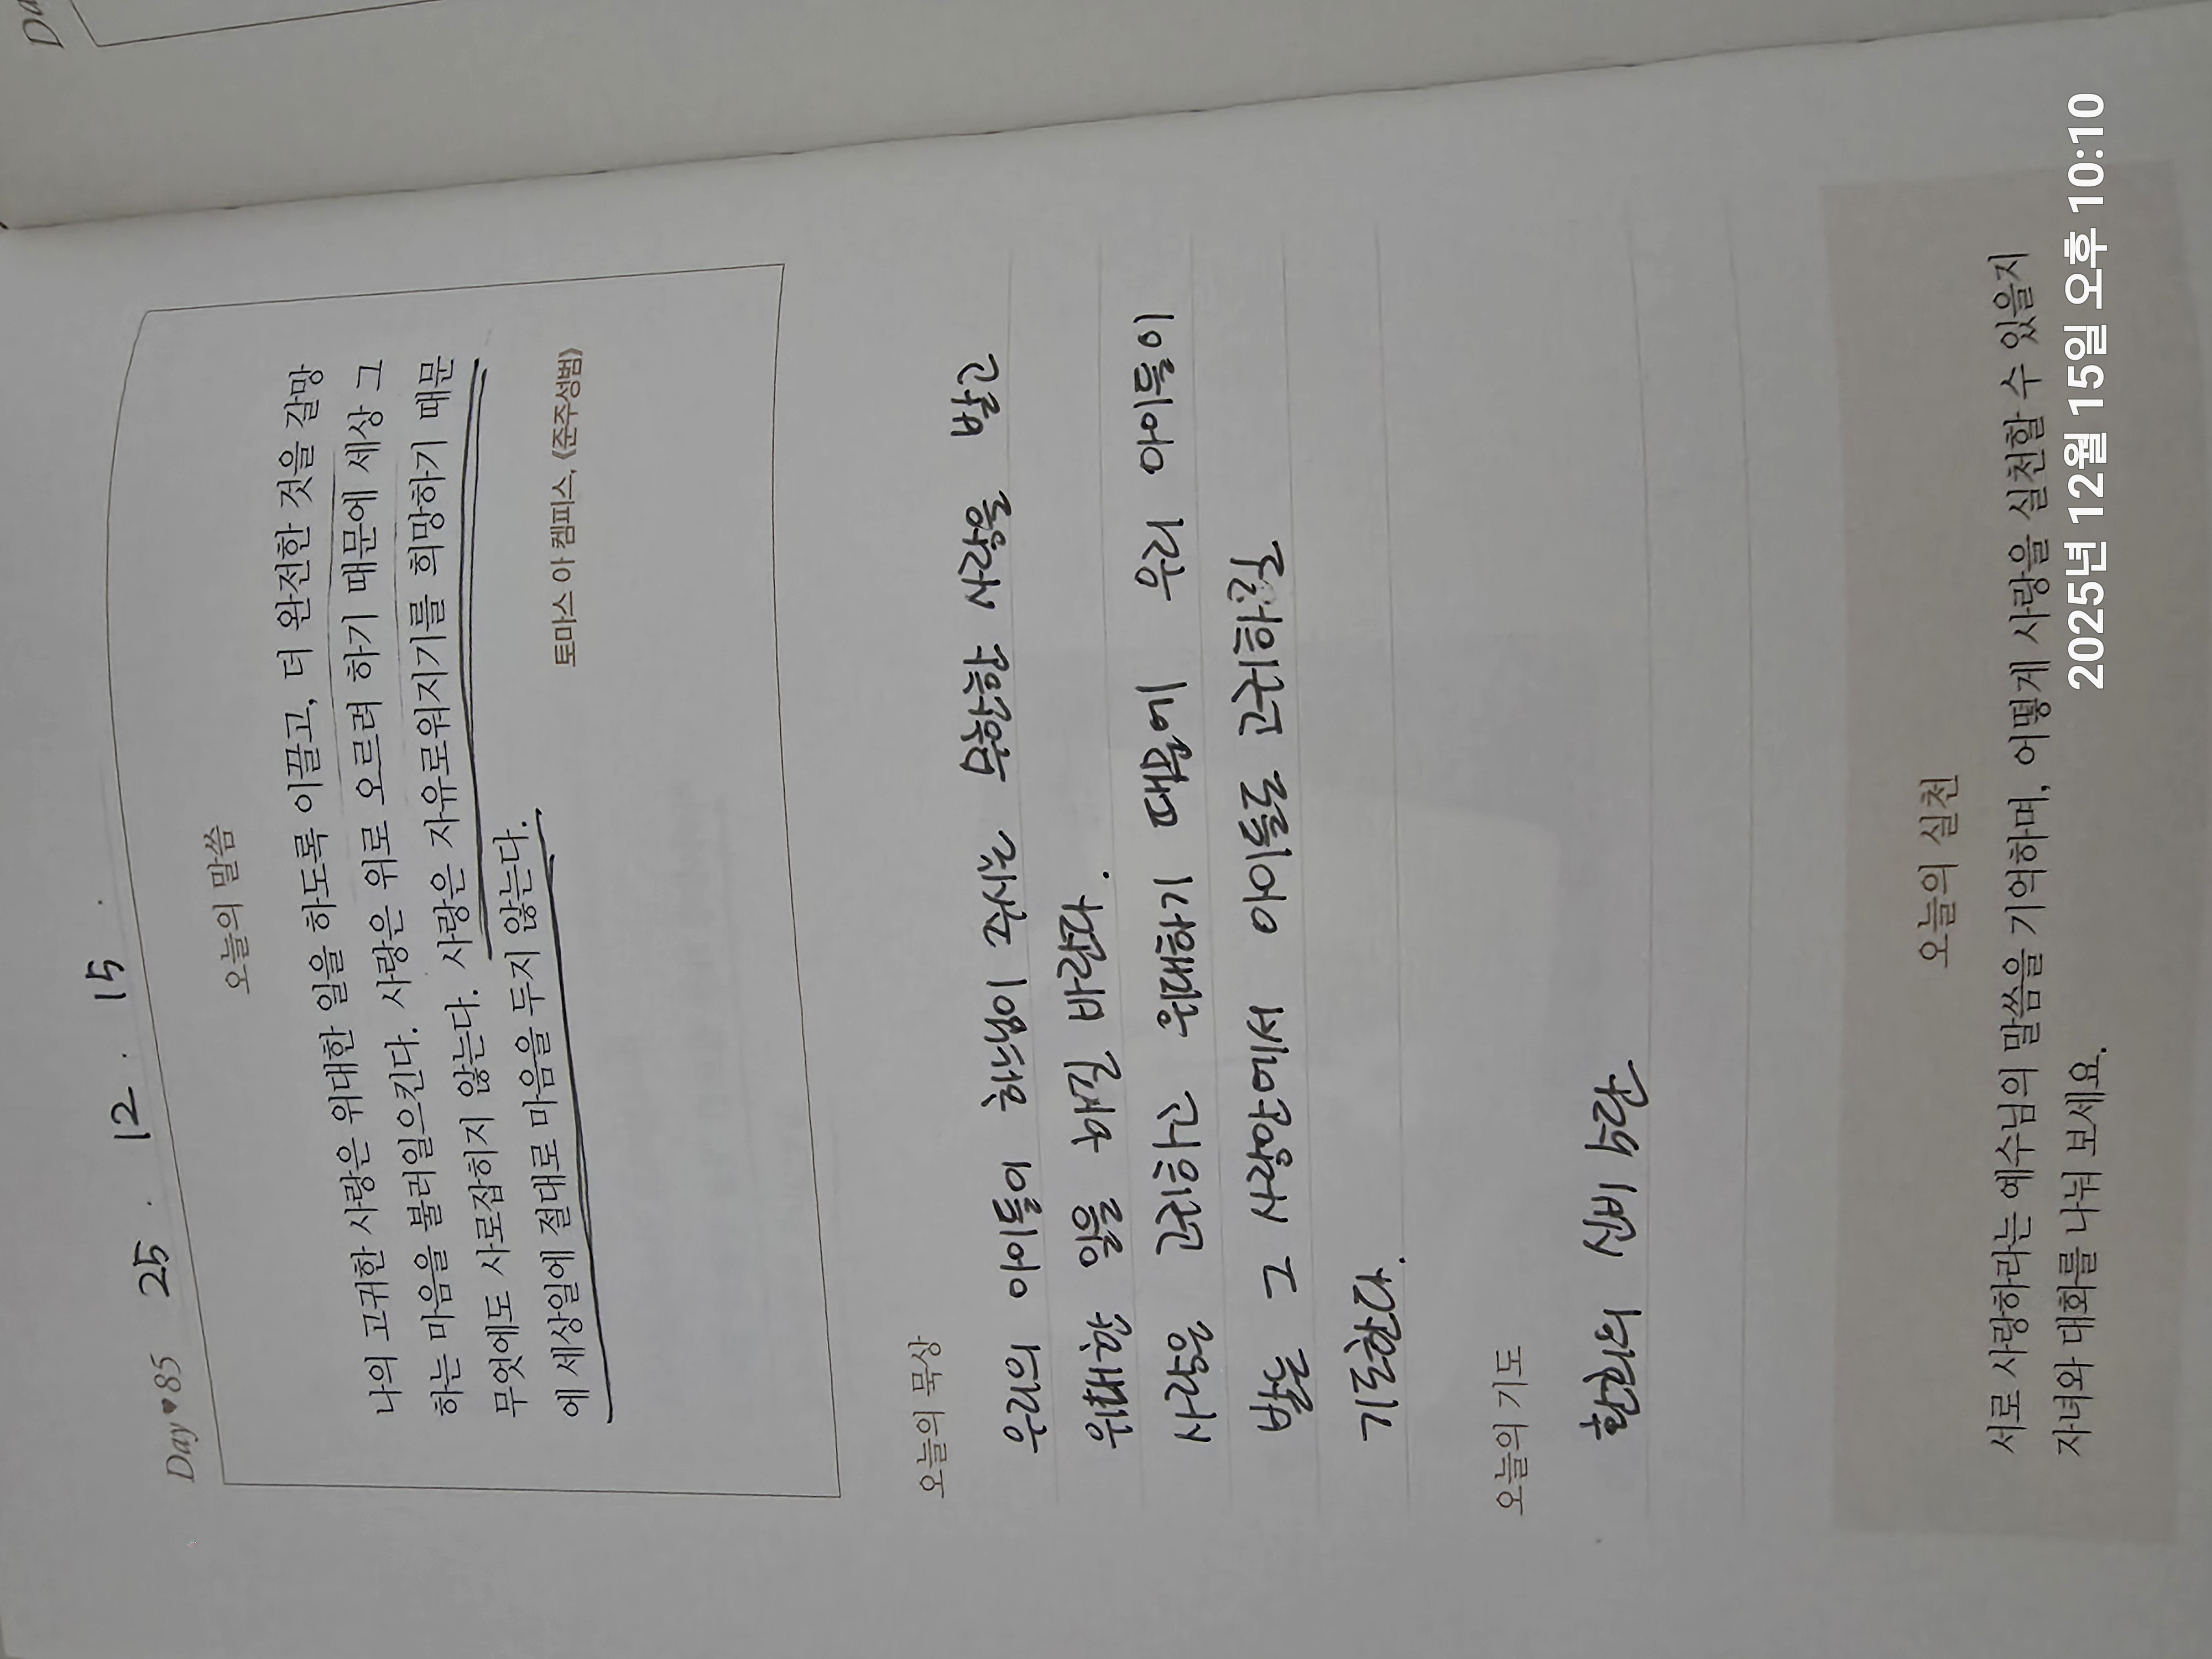 Day♥85 25. 12. 15.
오늘의 말씀
나의 고귀한 사랑은 위대한 일을 하도록 이끌고, 더 완전한 것을 갈망
하는 마음을 불러일으킨다. 사랑은 위로 오르려 하기 때문에 세상 그
무엇에도 사로잡히지 않는다. 사랑은 자유로워지기를 희망하기 때문
에 세상일에 절대로 마음을 두지 않는다.
토마스 아 켐피스, 《준주성범》
오늘의 묵상
우리의 아이들이 하느님이 주시는 무한한 사랑을 받고
위대한 일을 해길 바란다.
사랑은 고귀하고 위대하기 때문에 우리 아이들이
받는 그 사랑안에서 아이들로 고귀하길
기도한다.
오늘의 기도
환희의 신비 5단
오늘의 실천
서로 사랑하라는 예수님의 말씀을 기억하며, 어떻게 사랑을 실천할 수 있을지
자녀와 대화를 나눠 보세요.
2025년 12월 15일 오후 10:10